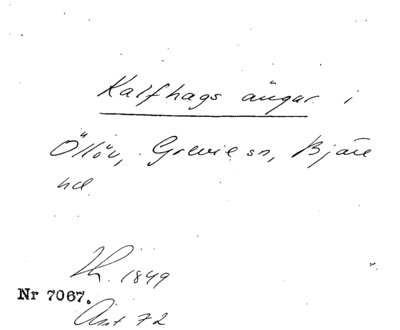 Kalfhags ängar i
Öllöv, Grevie sn, Bjäre
hd
Th. 1849
Nr 7067.
Ant 72